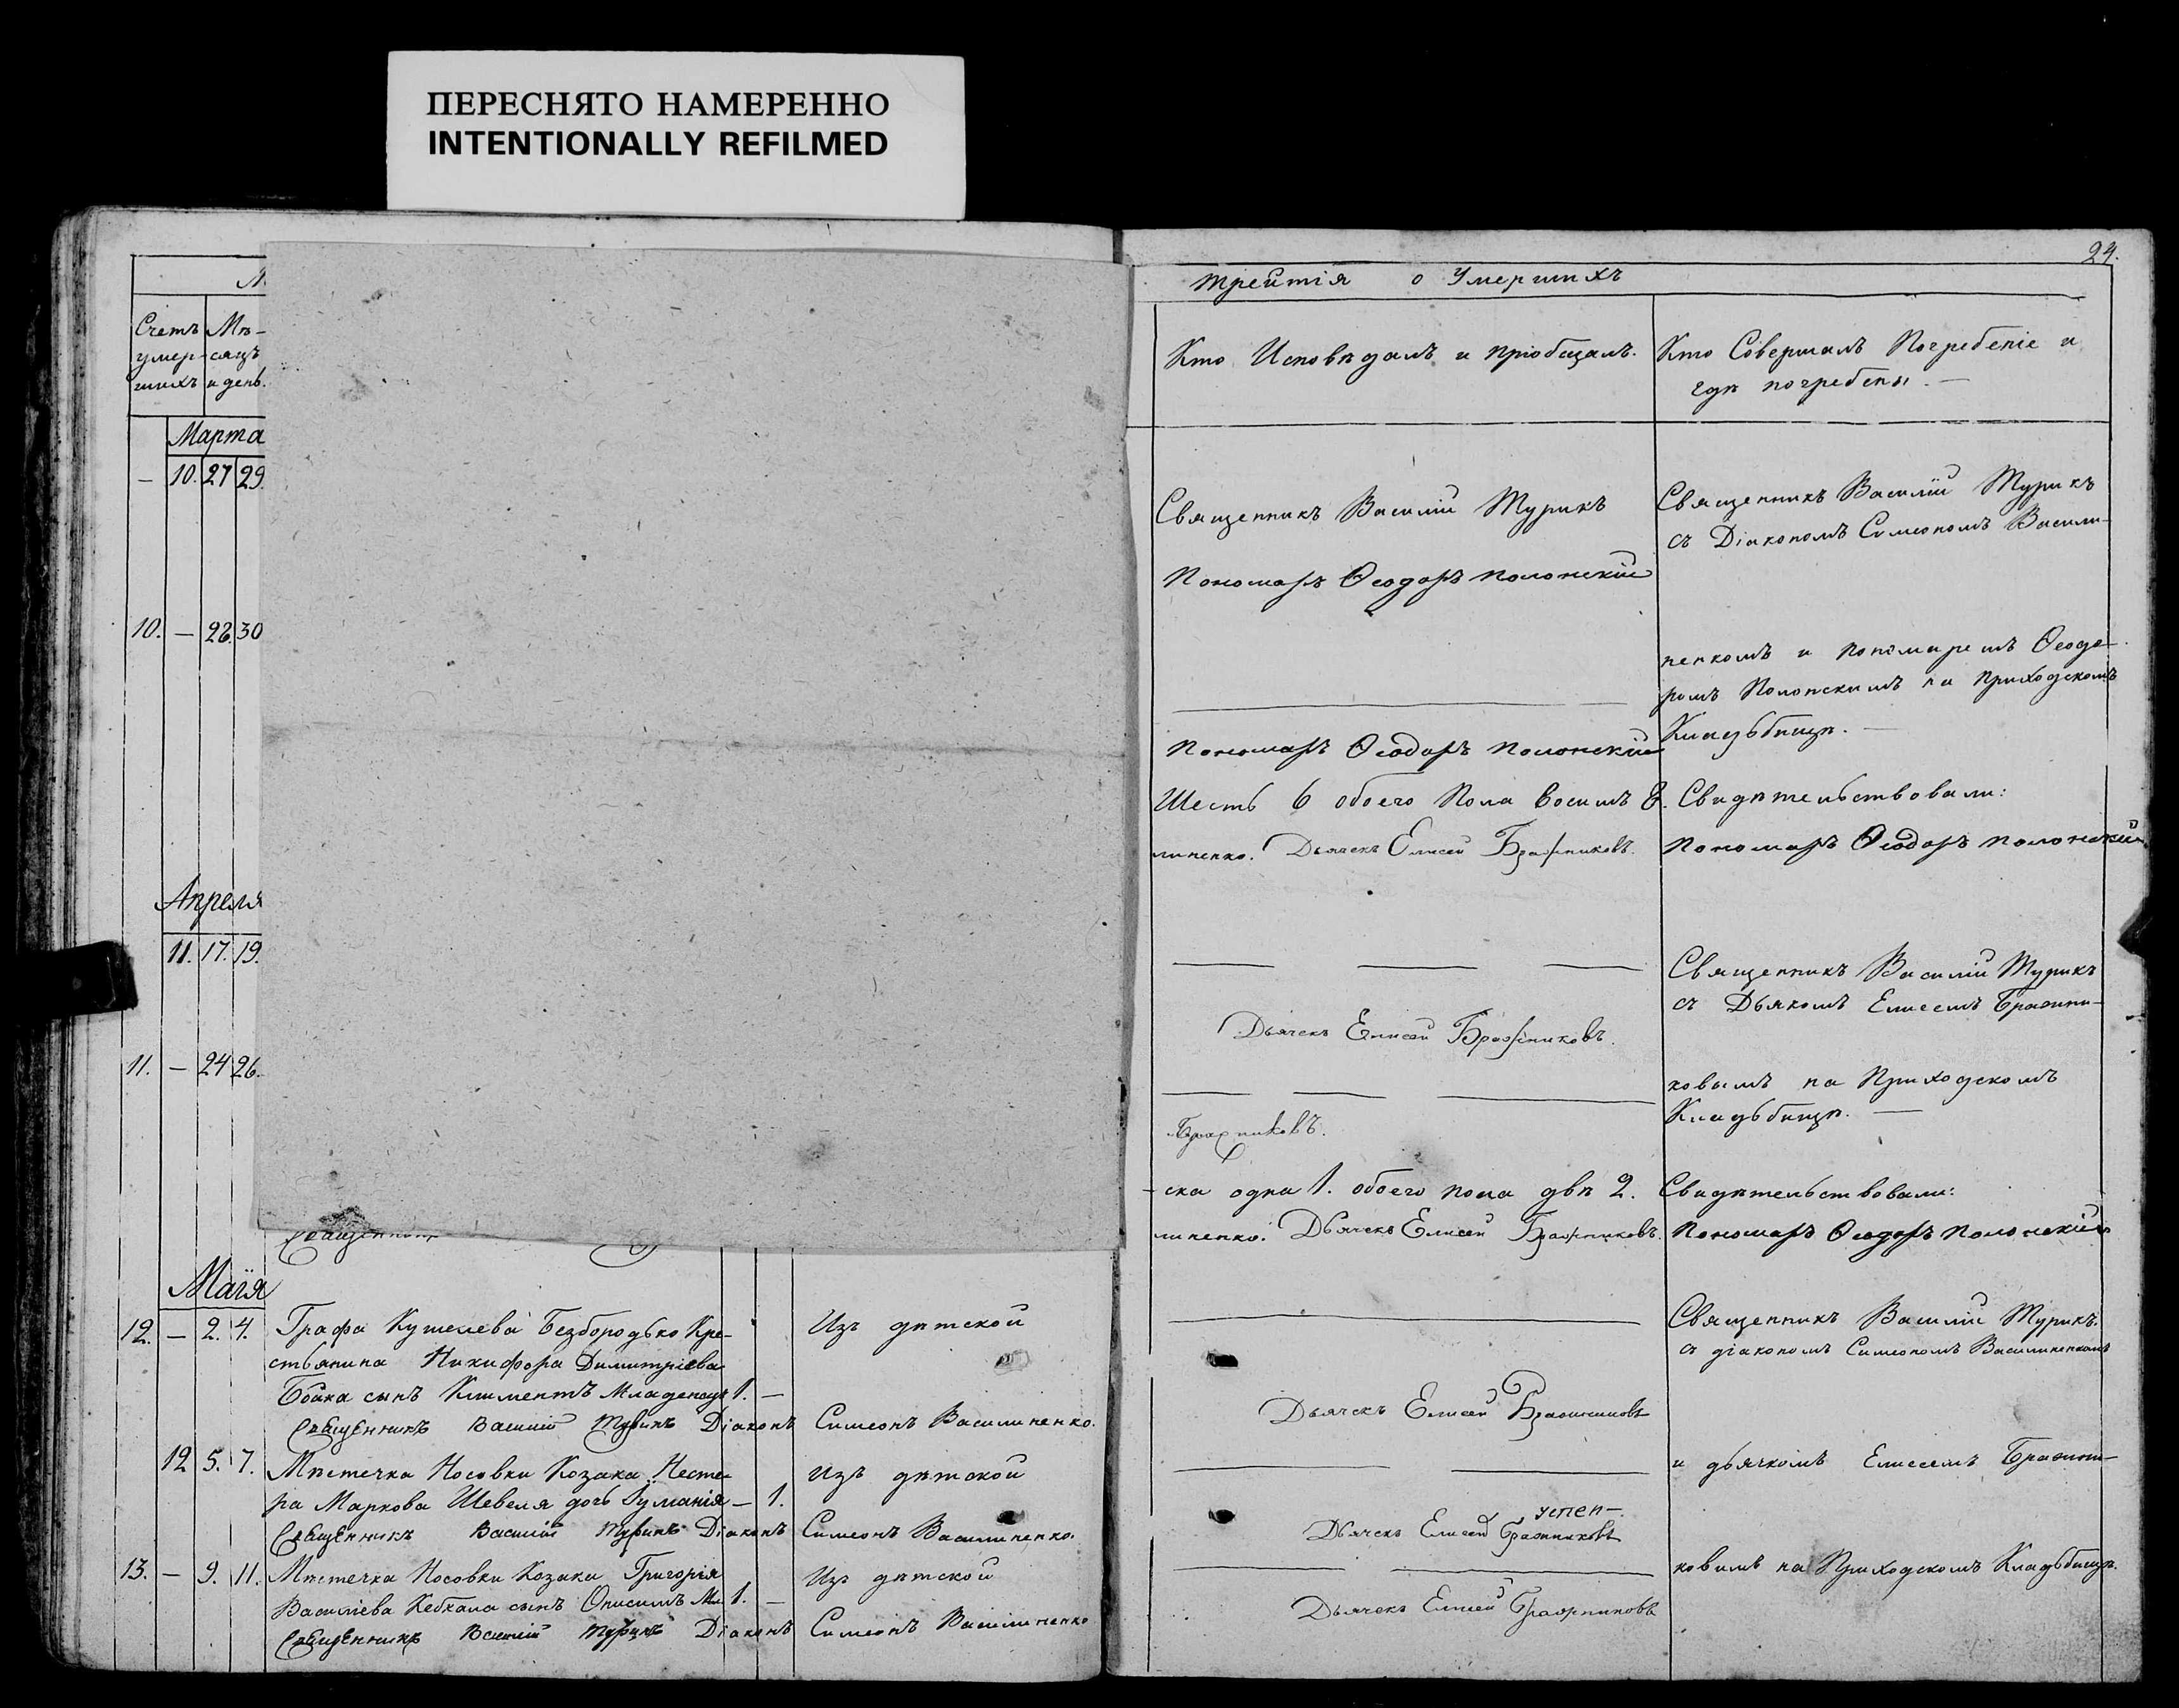 ПЕРЕСНЯТО НАМЕРЕННО
INTENTIONALLY REFILMED
Счетъ Мѣ-
умер- сяцъ
шихъ и день.
Марта
— 10. 27 29.
10. — 28. 30
Апреля
11. 17. 19.
11. — 24 26.
Священникъ
Маія
12. — 2. 4. Графа Кушелева Безбородько Кре- Изъ дѣтской
стьянина Никифора Димитріева
сынъ Климентъ младенецъ 1. —
Священникъ Василій Турикъ Діаконъ Симеонъ Василиненко.
12 5. 7. Мѣстечка Носовки Козака Несте- изъ дѣтской
ра Маркова Шевеля дочь — 1.
Священникъ Василій Турикъ Діаконъ Симеонъ Василиненко.
13. — 9. 11. Мѣстечка Носовки Козака Григорія Изъ дѣтской
Василіева сынъ Онисимъ Мл. 1. —
Священникъ Василій Турикъ Діаконъ Симеонъ Василиненко
24.
трейтія о Умершихъ
Кто Исповѣдалъ и пріобщалъ. Кто Совершалъ Погребеніе и
гдѣ погребены. —
Священникъ Василій Турикъ
Священникъ Василій Турикъ
съ Діакономъ Симеономъ Васили-
Пономарь Ѳеодоръ Полонскій
ненкомъ и пономаремъ Ѳеодо-
ромъ Полонскимъ на приходскомъ
Кладьбищѣ. —
Пономарь Ѳеодоръ Полонскій
Шесть 6 обоего Пола восимъ 8. Свидѣтельствовали:
линенко. Дьячекъ Елисей Бражниковъ. Пономарь Ѳеодоръ Полонскій
Священникъ Василій Турикъ
съ Дьякомъ Елисеемъ Бражни-
Дьячекъ Елисей Бражниковъ.
ковымъ на Приходскомъ
Кладьбищѣ. —
Бражниковъ.
-ска одна 1. обоего пола двѣ 2. Свидѣтельствовали:
линенко. Дьячекъ Елисей Бражниковъ. Пономарь Ѳеодоръ Полонскій
Священникъ Василій Турикъ.
съ діакономъ Симеономъ Василиненкомъ
Дьячекъ Елисей Бражниковъ
и дьячкомъ Елисеемъ Бражни-
успен-
Дьячекъ Елисей Бражниковъ
ковымъ на Приходскомъ Кладьбищѣ.
Дьячекъ Елисей Бражниковъ